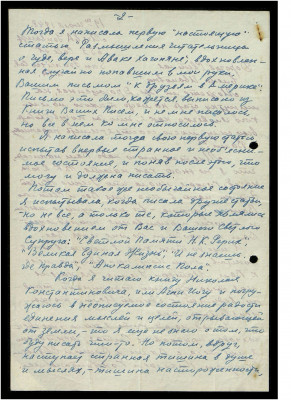 -2-
Тогда я написала первую "настоящую"
статью. Размышления читательницы
о чуде, вере и Авака Хагояне, вдохновлен-
ная случайно попавшим в мои руки
Вашим письмом "К друзьям в Америке".
Письмо это было, кажется, выписано из
Книги Ваших писем, и не мне писалось,
но вы в нем ко мне относилось.
Я написала тогда свою первую статью
испытав впервые странное и необъясни-
мое состояние, и поняв после этого, что
могу и должна писать.
Потом такое же необычайное состояние
я испытывала, когда писала другие статьи,
но не все, а только те, которые являлись
вдохновением от Вас и Вашего Светлого
Супруга: "Светлой Памяти Н.К. Рерих",
"Великая Единая Жизнь", "И не знали...
"Апокалипсис
Когда я читаю книги Николая
Константиновича, или Агни Йогу и погру-
жаюсь в неописуемое состояние радости
единения мыслей и целей, отрывающего
от земли, - то я еще не знаю о том, что
буду писать что-то. Но потом, вдруг,
наступает странная тишина в душе
и мыслях, - тишина настороженности